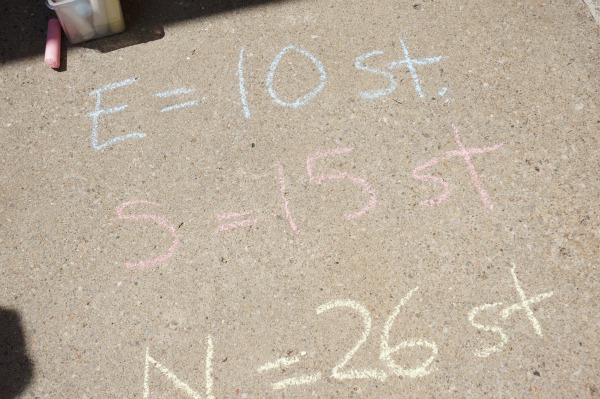 E = 10 st.
S = 15 st
N = 26 st